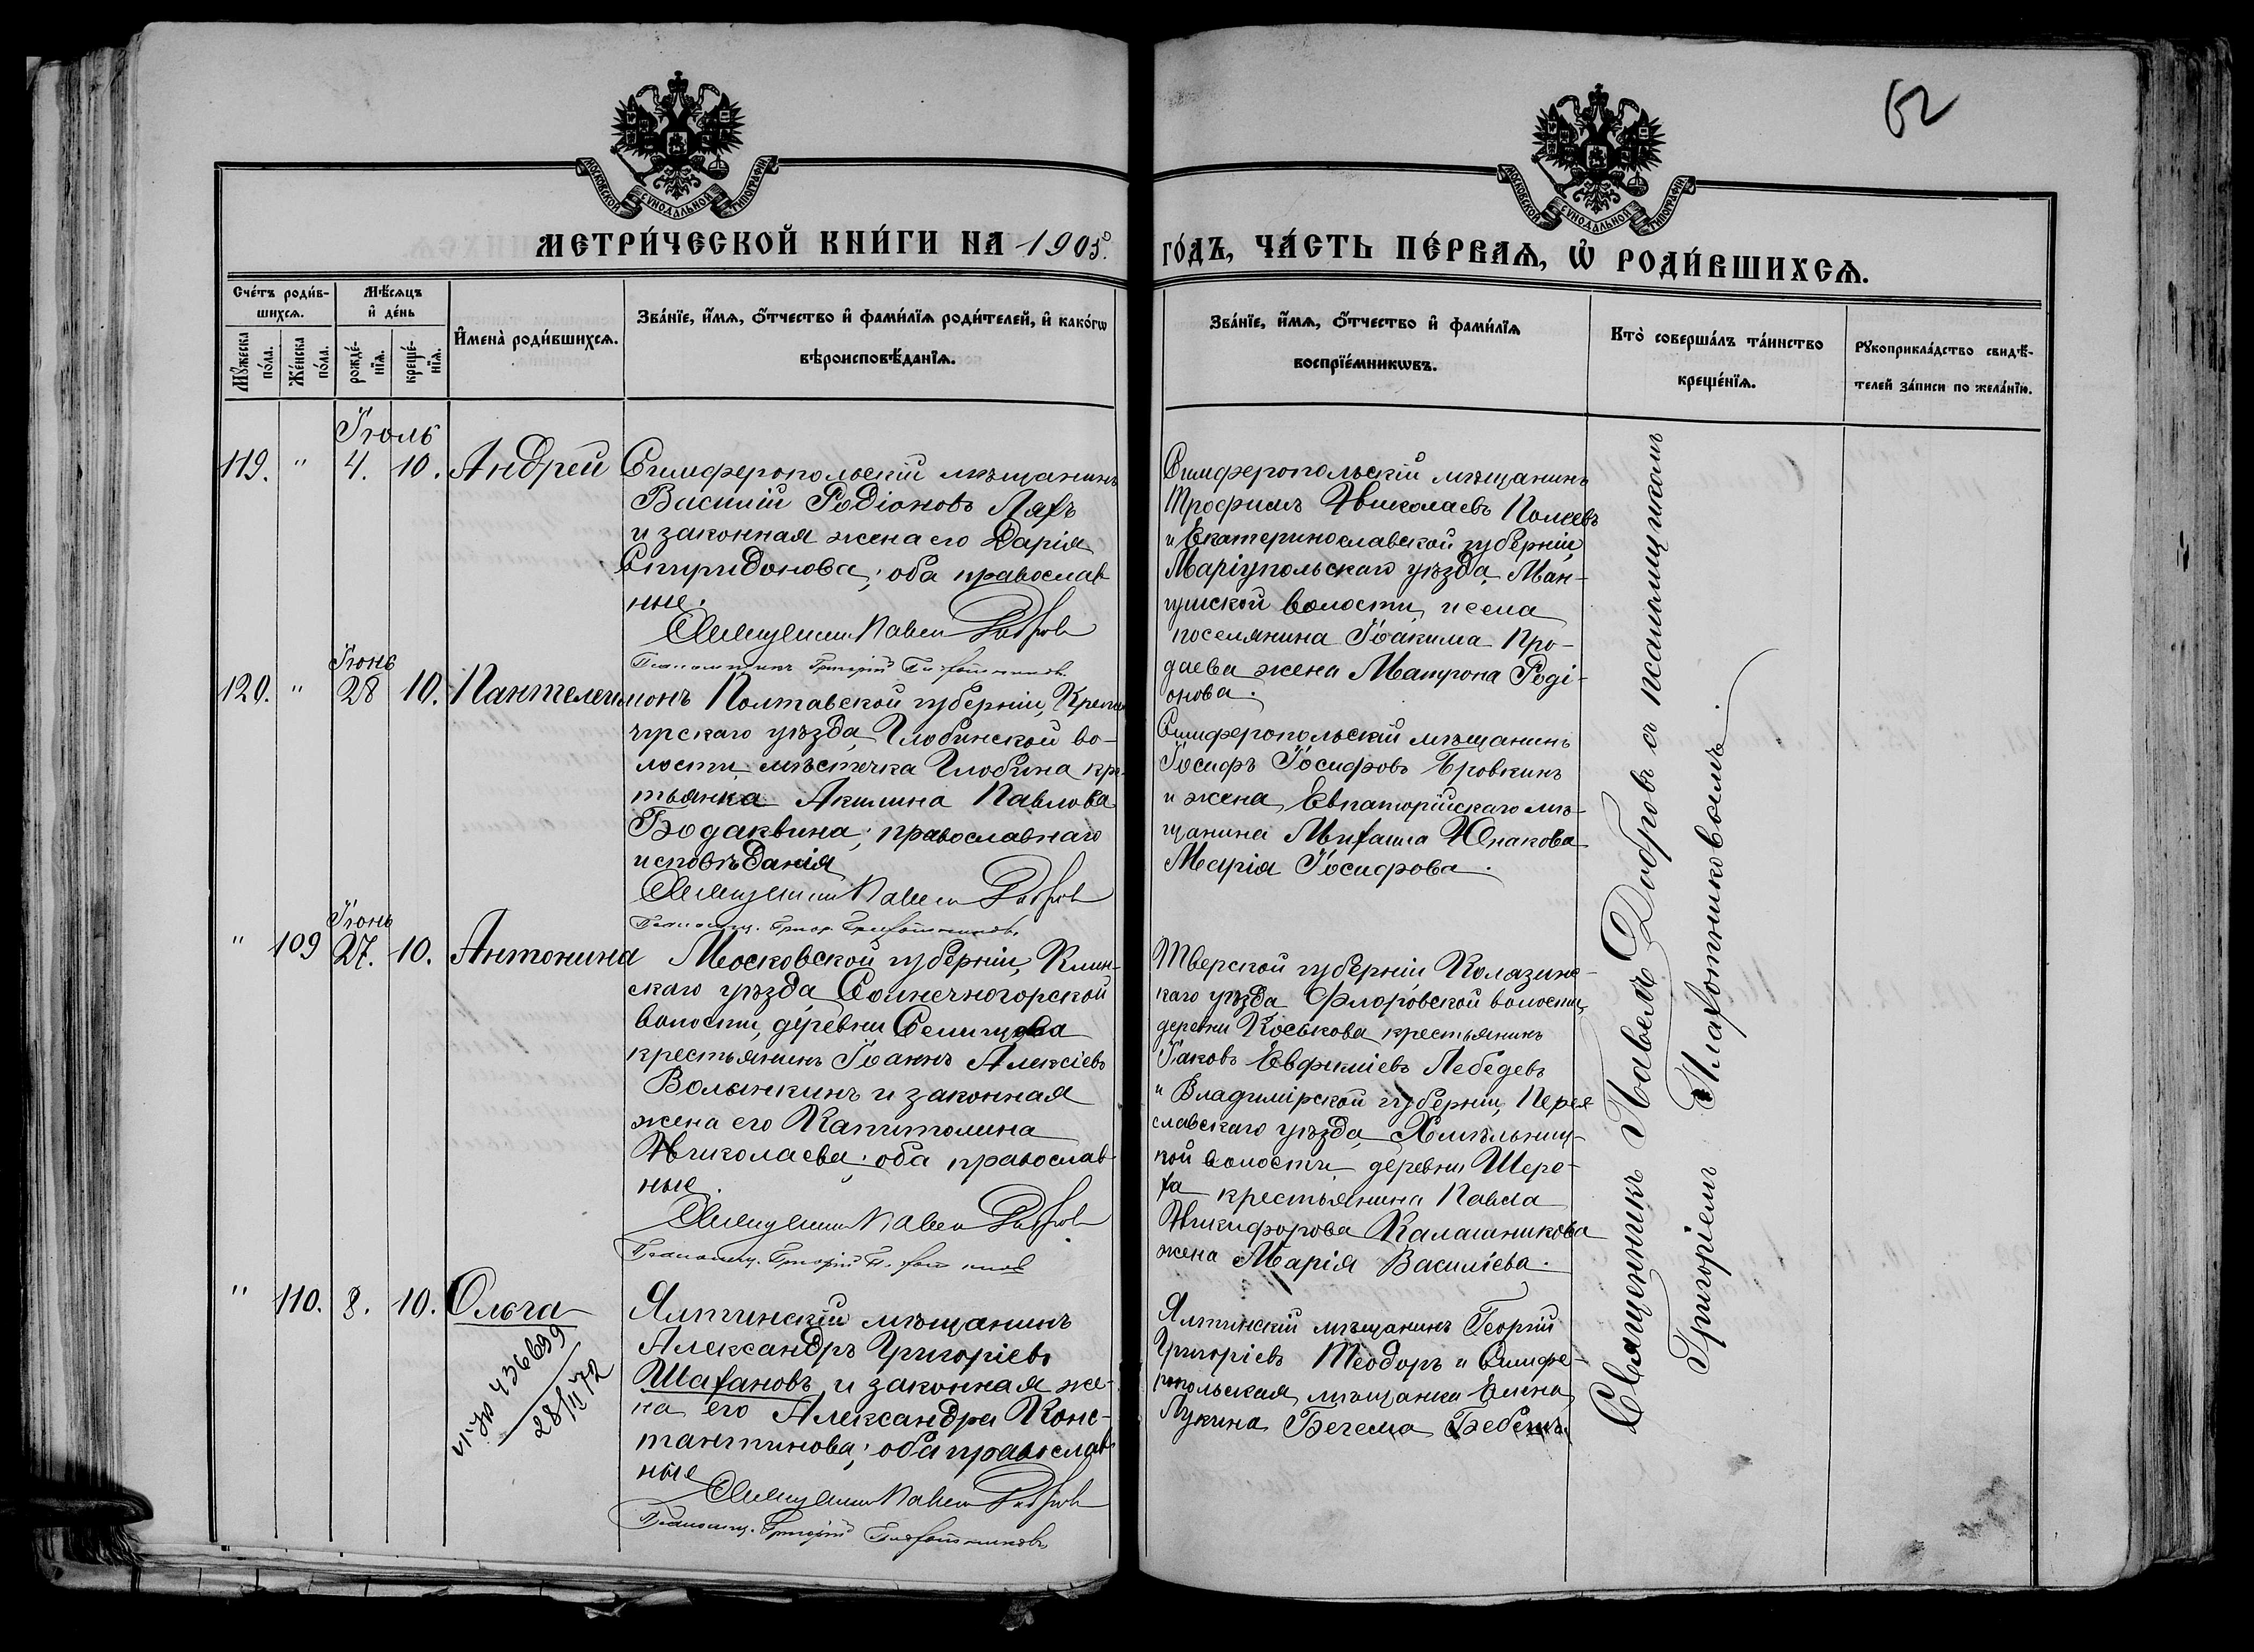 62
МОСКОВСКОЙ СѴНОДАЛЬНОЙ ТИПОГРАФІИ
МОСКОВСКОЙ СѴНОДАЛЬНОЙ ТИПОГРАФІИ
МЕТРИ́ЧЕСКОЙ КНИ́ГИ НА 1905
ГО́ДЪ, ЧА́СТЬ ПЕ́РВАѦ, Ѡ҆ РОДИ́ВШИХСѦ.
Сче́тъ роди́в-
шихсѧ.
Мꙋ́жеска по́ла.
Же́нска по́ла.
Мѣ́сѧцъ
и҆ де́нь
рожде́-
нїѧ.
креще́-
нїѧ.
И҆мена̀ роди́вшихсѧ.
Зва́нїе, и҆́мѧ, ѻ҆́тчество и҆ фами́лїѧ роди́телей, и҆ како́гѡ
вѣроисповѣ́данїѧ.
Зва́нїе, и҆́мѧ, ѻ҆́тчество и҆ фами́лїѧ
воспрїе́мникѡвъ.
Кто̀ соверша́лъ та́инство
креще́нїѧ.
Рꙋкоприкла́дство свидѣ́-
телей за́писи по жела́нїю.
Іюль
119. " 4. 10. Андрей
Симферопольскій мѣщанинъ
Василій Родіоновъ Ляхъ
и законная жена его Дарія
Спиридонова; оба православ
ные.
Священникъ Павелъ Добровъ
Псаломщикъ Григорій Плахотниковъ
Симферопольскій мѣщанинъ
Трофимъ Николаевъ
и Екатеринославской губерніи
Маріупольскаго уѣзда Ман-
гушской волости, и села
поселянина Іоакима Про-
даева жена Матрона Роді-
онова.
Іюнь
120. " 28 10. Пантелеимонъ
Полтавской губерніи, Кремен
чугскаго уѣзда Глобинской во-
лости мѣстечка Глобина кре
тьянка Акилина Павлова
Бодаквина; православнаго
исповѣданія
Священникъ Павелъ Добровъ
Псаломщ. Григор. Плахотниковъ
Симферопольскій мѣщанинъ
Іосифъ Іосифовъ Бровкинъ
и жена Евпаторійскаго мѣ-
щанина Михаила Юнакова
Марія Іосифова.
Іюнь
" 109 27. 10. Антонина
Московской губерніи, Клин-
скаго уѣзда Солнечногорской
волости, деревни
крестьянинъ Іоаннъ Алексіевъ
Волынкинъ и законная
жена его Капитолина
Николаева; оба православ-
ные.
Священникъ Павелъ Добровъ
Псаломщ. Григорій Плахотниковъ
Тверской губерніи Колязинс-
каго уѣзда Флоровской волости,
деревни Коськова крестьянинъ
Іаковъ Евфиміевъ Лебедевъ
и Владимірской губерніи, Перея
славскаго уѣзда Хмѣльниц-
кой волости деревни Шере-
ха крестьянина Павла
Никифорова Калашникова
жена Марія Василіева.
" 110. 8. 10. Ольга
28/II 72
Ялтинскій мѣщанинъ
Александръ Григоріевъ
Шахановъ и законная же-
на его Александра Конс-
тантинова; оба православ
ные
Священникъ Павелъ Добровъ
Псаломщ. Григорій Плахотниковъ
Ялтинскій мѣщанинъ Георгій
Григоріевъ Теодоръ и Симфе-
ропольская мѣщанка Елена
Лукина
Священникъ Павелъ Добровъ съ псаломщикомъ
Григоріемъ Плахотниковымъ.